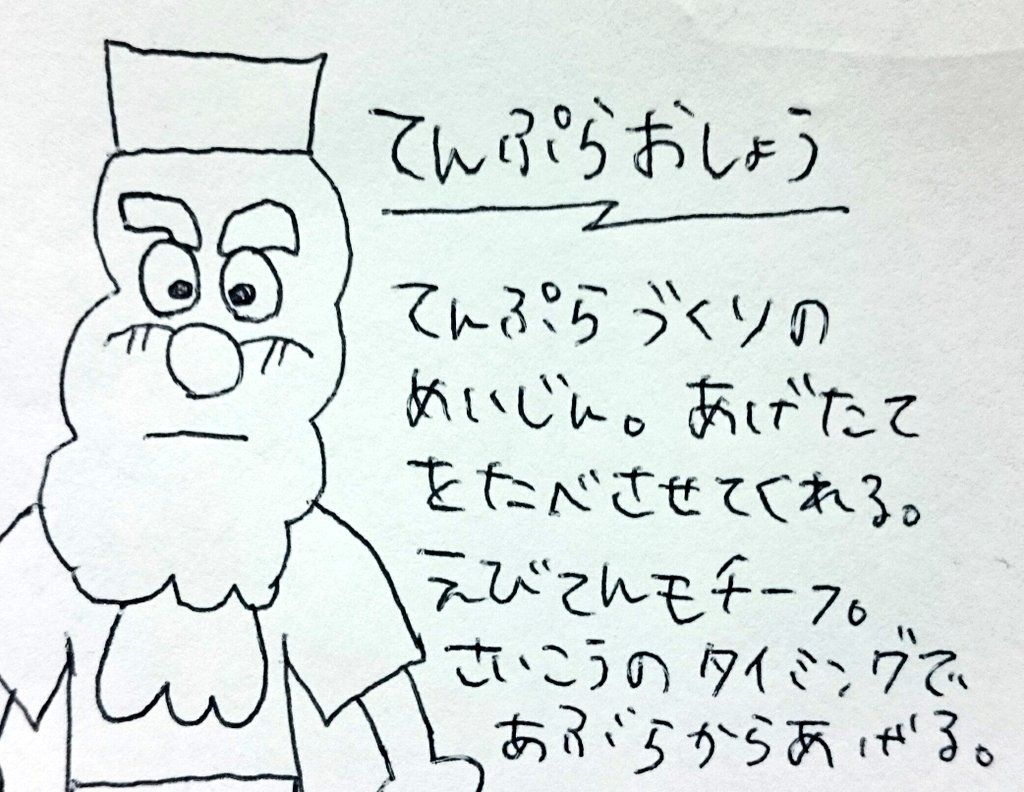 てんぷらおしょう
てんぷらづくりの
めいじん。あげたて
をたべさせてくれる。
えびてんモチーフ。
さいこうのタイミングで
あぶらからあげる。